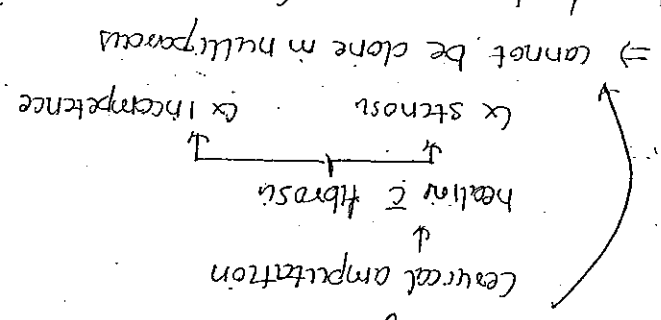 Cervical amputation
↓
healing c̄ fibrosis
Cx stenosis Cx incompetence
⇒ cannot be done in nulliparous